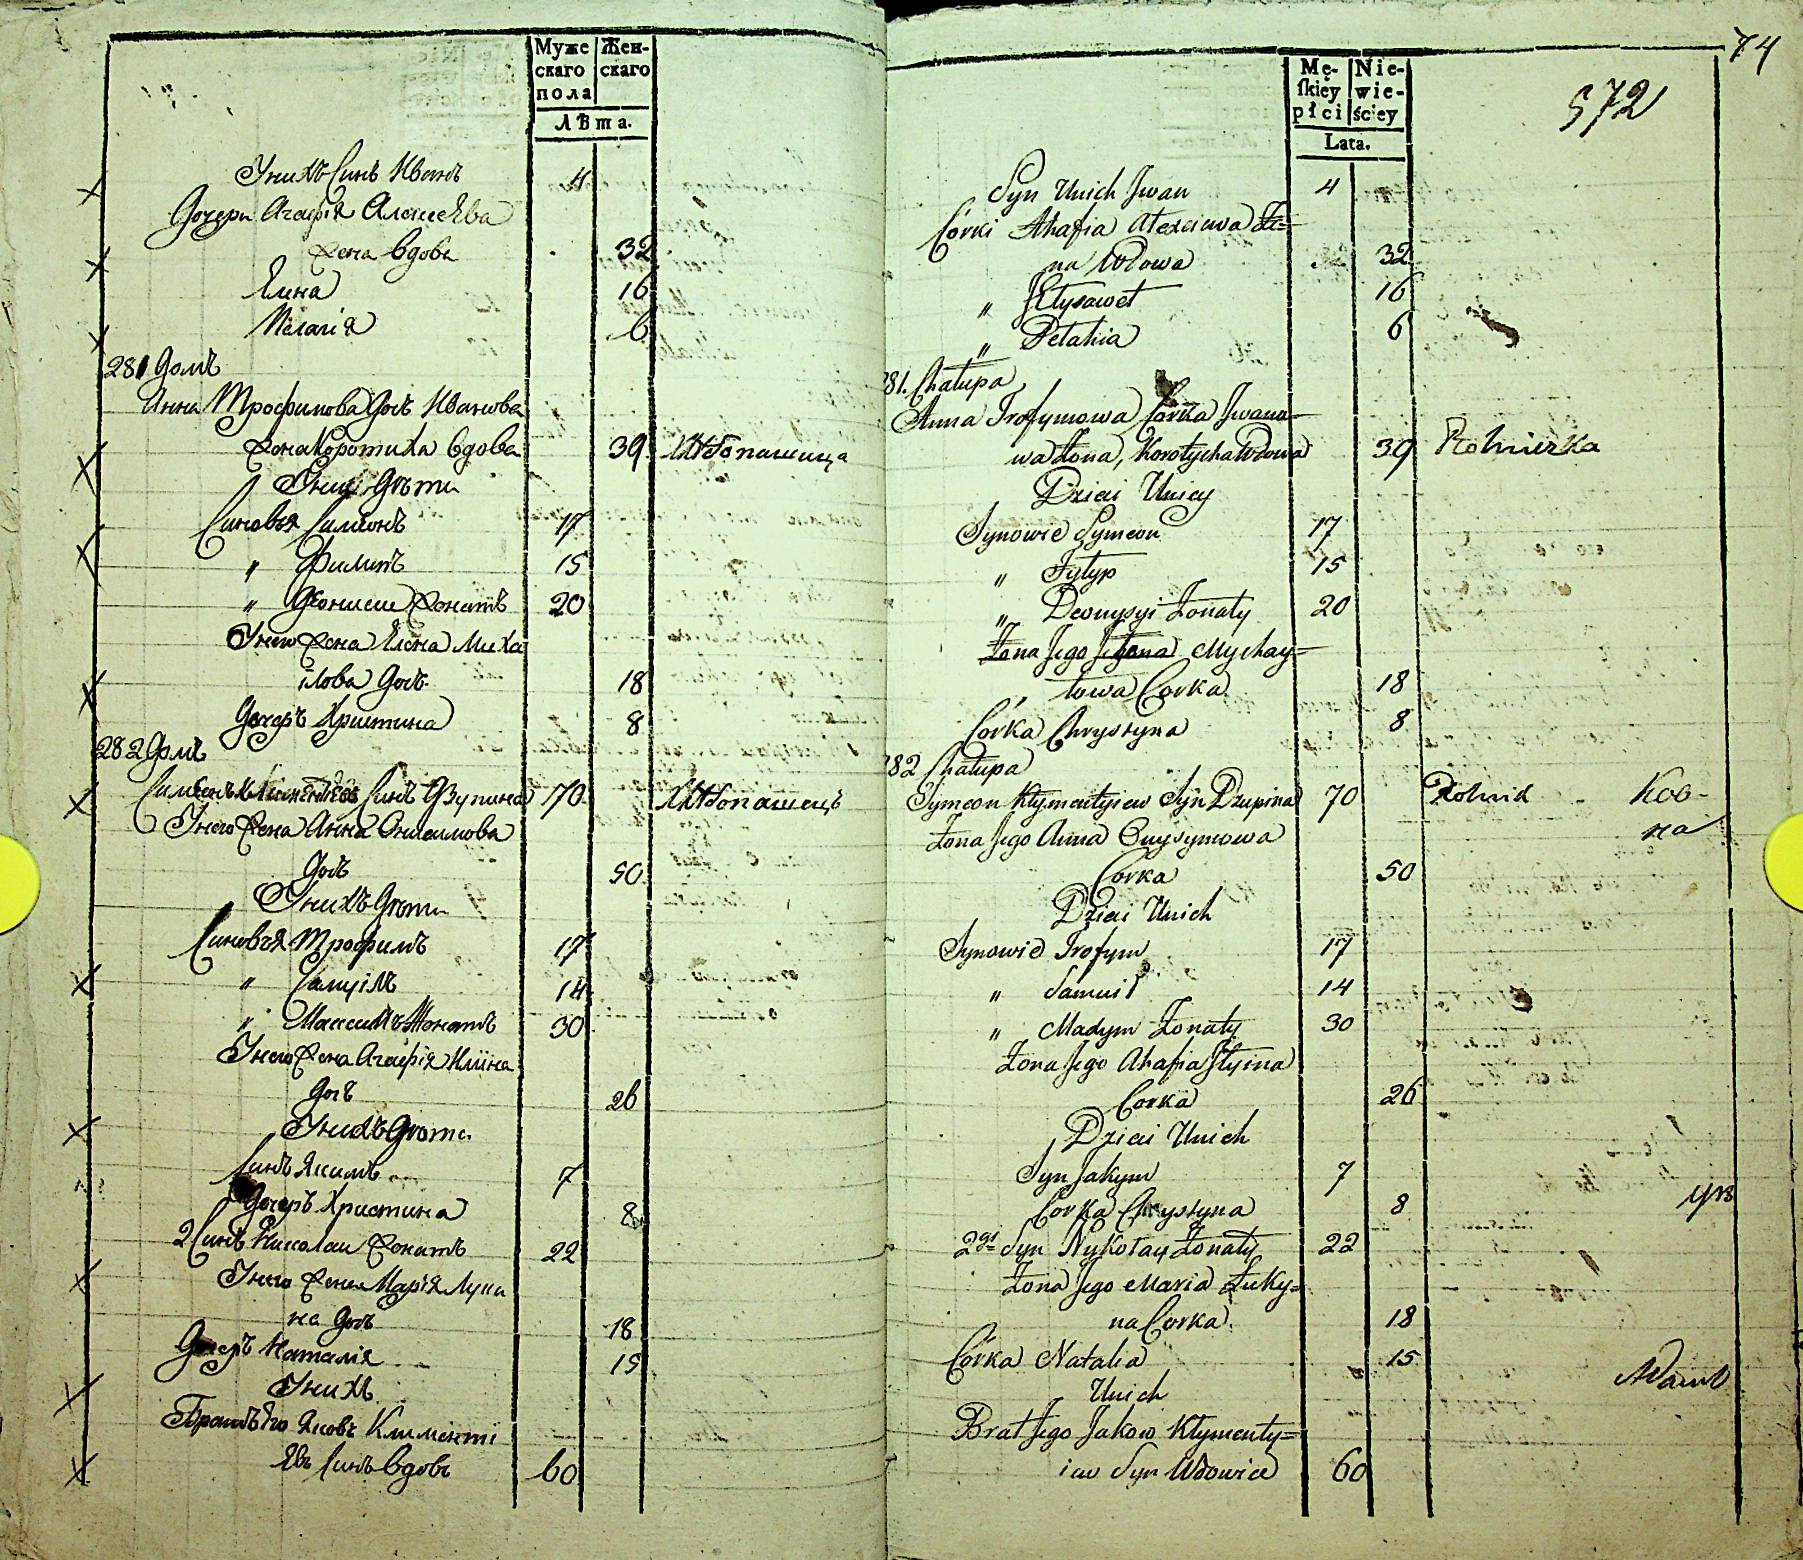 Муже
скаго
пола
Жен-
скаго
Лѣта.
Унихъ Синъ Иванъ 4
Дочери Агафія Алексеева
Жена Вдова 32
Елена 16
Пелагія 6
281 Домъ
Анна Трофимова Доч Иванова
Жена Коротиха Вдова 39 Хлѣбопашица
Унихъ Дѣти
Синовья Симіонъ 17
" Филипъ 15
" Деонисій Женатъ 20
Унего Жена Елена Миха
йлова Доч. 18
Дочеръ Христина 8
282 Домъ
Симеонъ Климентіевъ Синъ Дзупина 70 Хлѣбопашецъ
Унего Жена Анна Онисимова
Доч 50
Унихъ Дѣти
Синовья Трофимъ 17
" Самуіл 14
" Максимъ Женатъ 30
Унего Жена Агафія Иліина
Доч 26
Унихъ Дѣти
Синъ Якимъ 7
Дочеръ Христина 8
2 Синъ Николаи Женатъ 22
Унего Жена Марія Луки
на Доч 18
Дочеръ Наталія 15
Унихъ
Братъ Его Яковъ Клименті
евъ Синъ Вдовъ 60
74
572
Mę-
skiey
płci
Nie-
wie-
ściey
Lata.
Syn Unich Iwan 4
Córki Ahafia Alexiewa Żo=
na Wdowa 32
" Jełysawet 16
" Pelahia 6
281. Chałupa
Anna Trofymowa Córka Iwano-
wa Żona, Korotycha Wdowa 39 Rolniczka
Dzieci Unich
Synowie Symeon 17
" Fyłyp 15
" Deonysyi Żonaty 20
Żona Jego Jełena Mychay=
" łowa Corka 18
Córka Chrystyna 8
282 Chałupa
Symeon Kłymentyiew Syn Dzupina 70 Rolnik
Żona Jego Anna Onysymowa
Corka 50
Dzieci Unich
Synowie Trofym 17
" Samuił 14
" Maxym Żonaty 30
Żona Jego Ahafia Ilyina
Corka 26
Dzieci Unich
Syn Jakym 7
Corka Chrystyna 8
2gi Syn Nykołay Żonaty 22
Żona Jego Maria Łuky=
na Corka 18
Córka Natalia 15
Unich
Brat Jego Jakow Kłymenty=
iew Syn Wdowiec 60